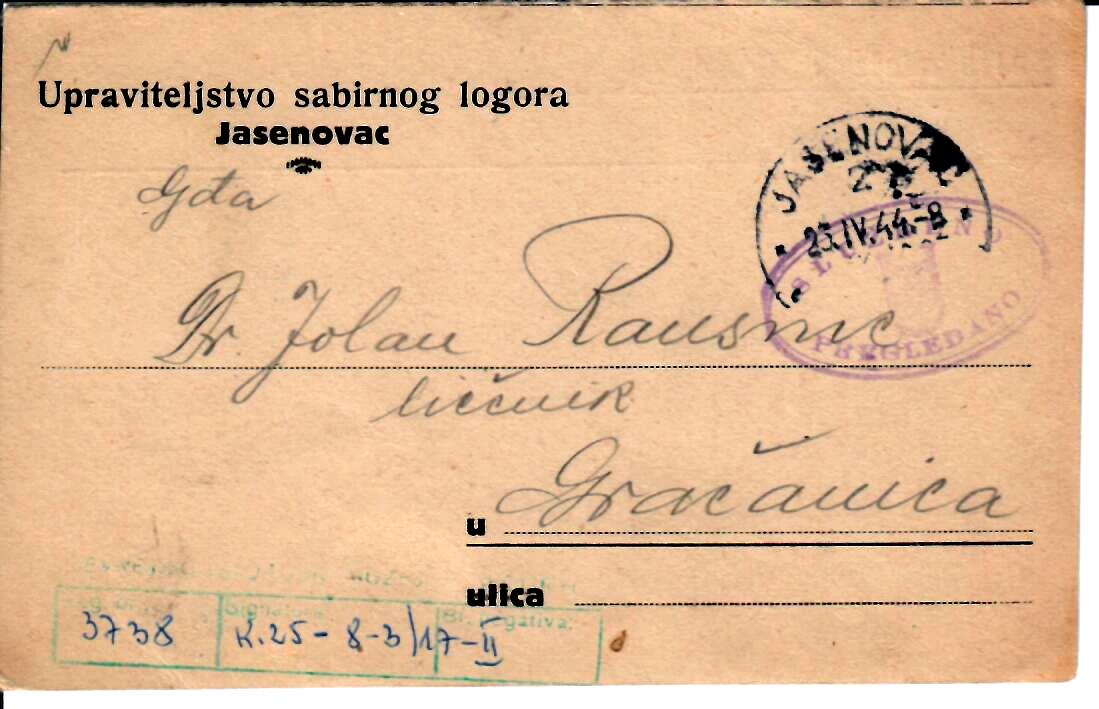 Upraviteljstvo sabirnog logora
Jasenovac
Gđa
JASENOVAC
2
23.IV.44.-8
SLUŽBENO
PREGLEDANO
Dr. Jolan
liečnik
u Gračanica
ulica
3738
Signatura
K.25-8-3/17-II